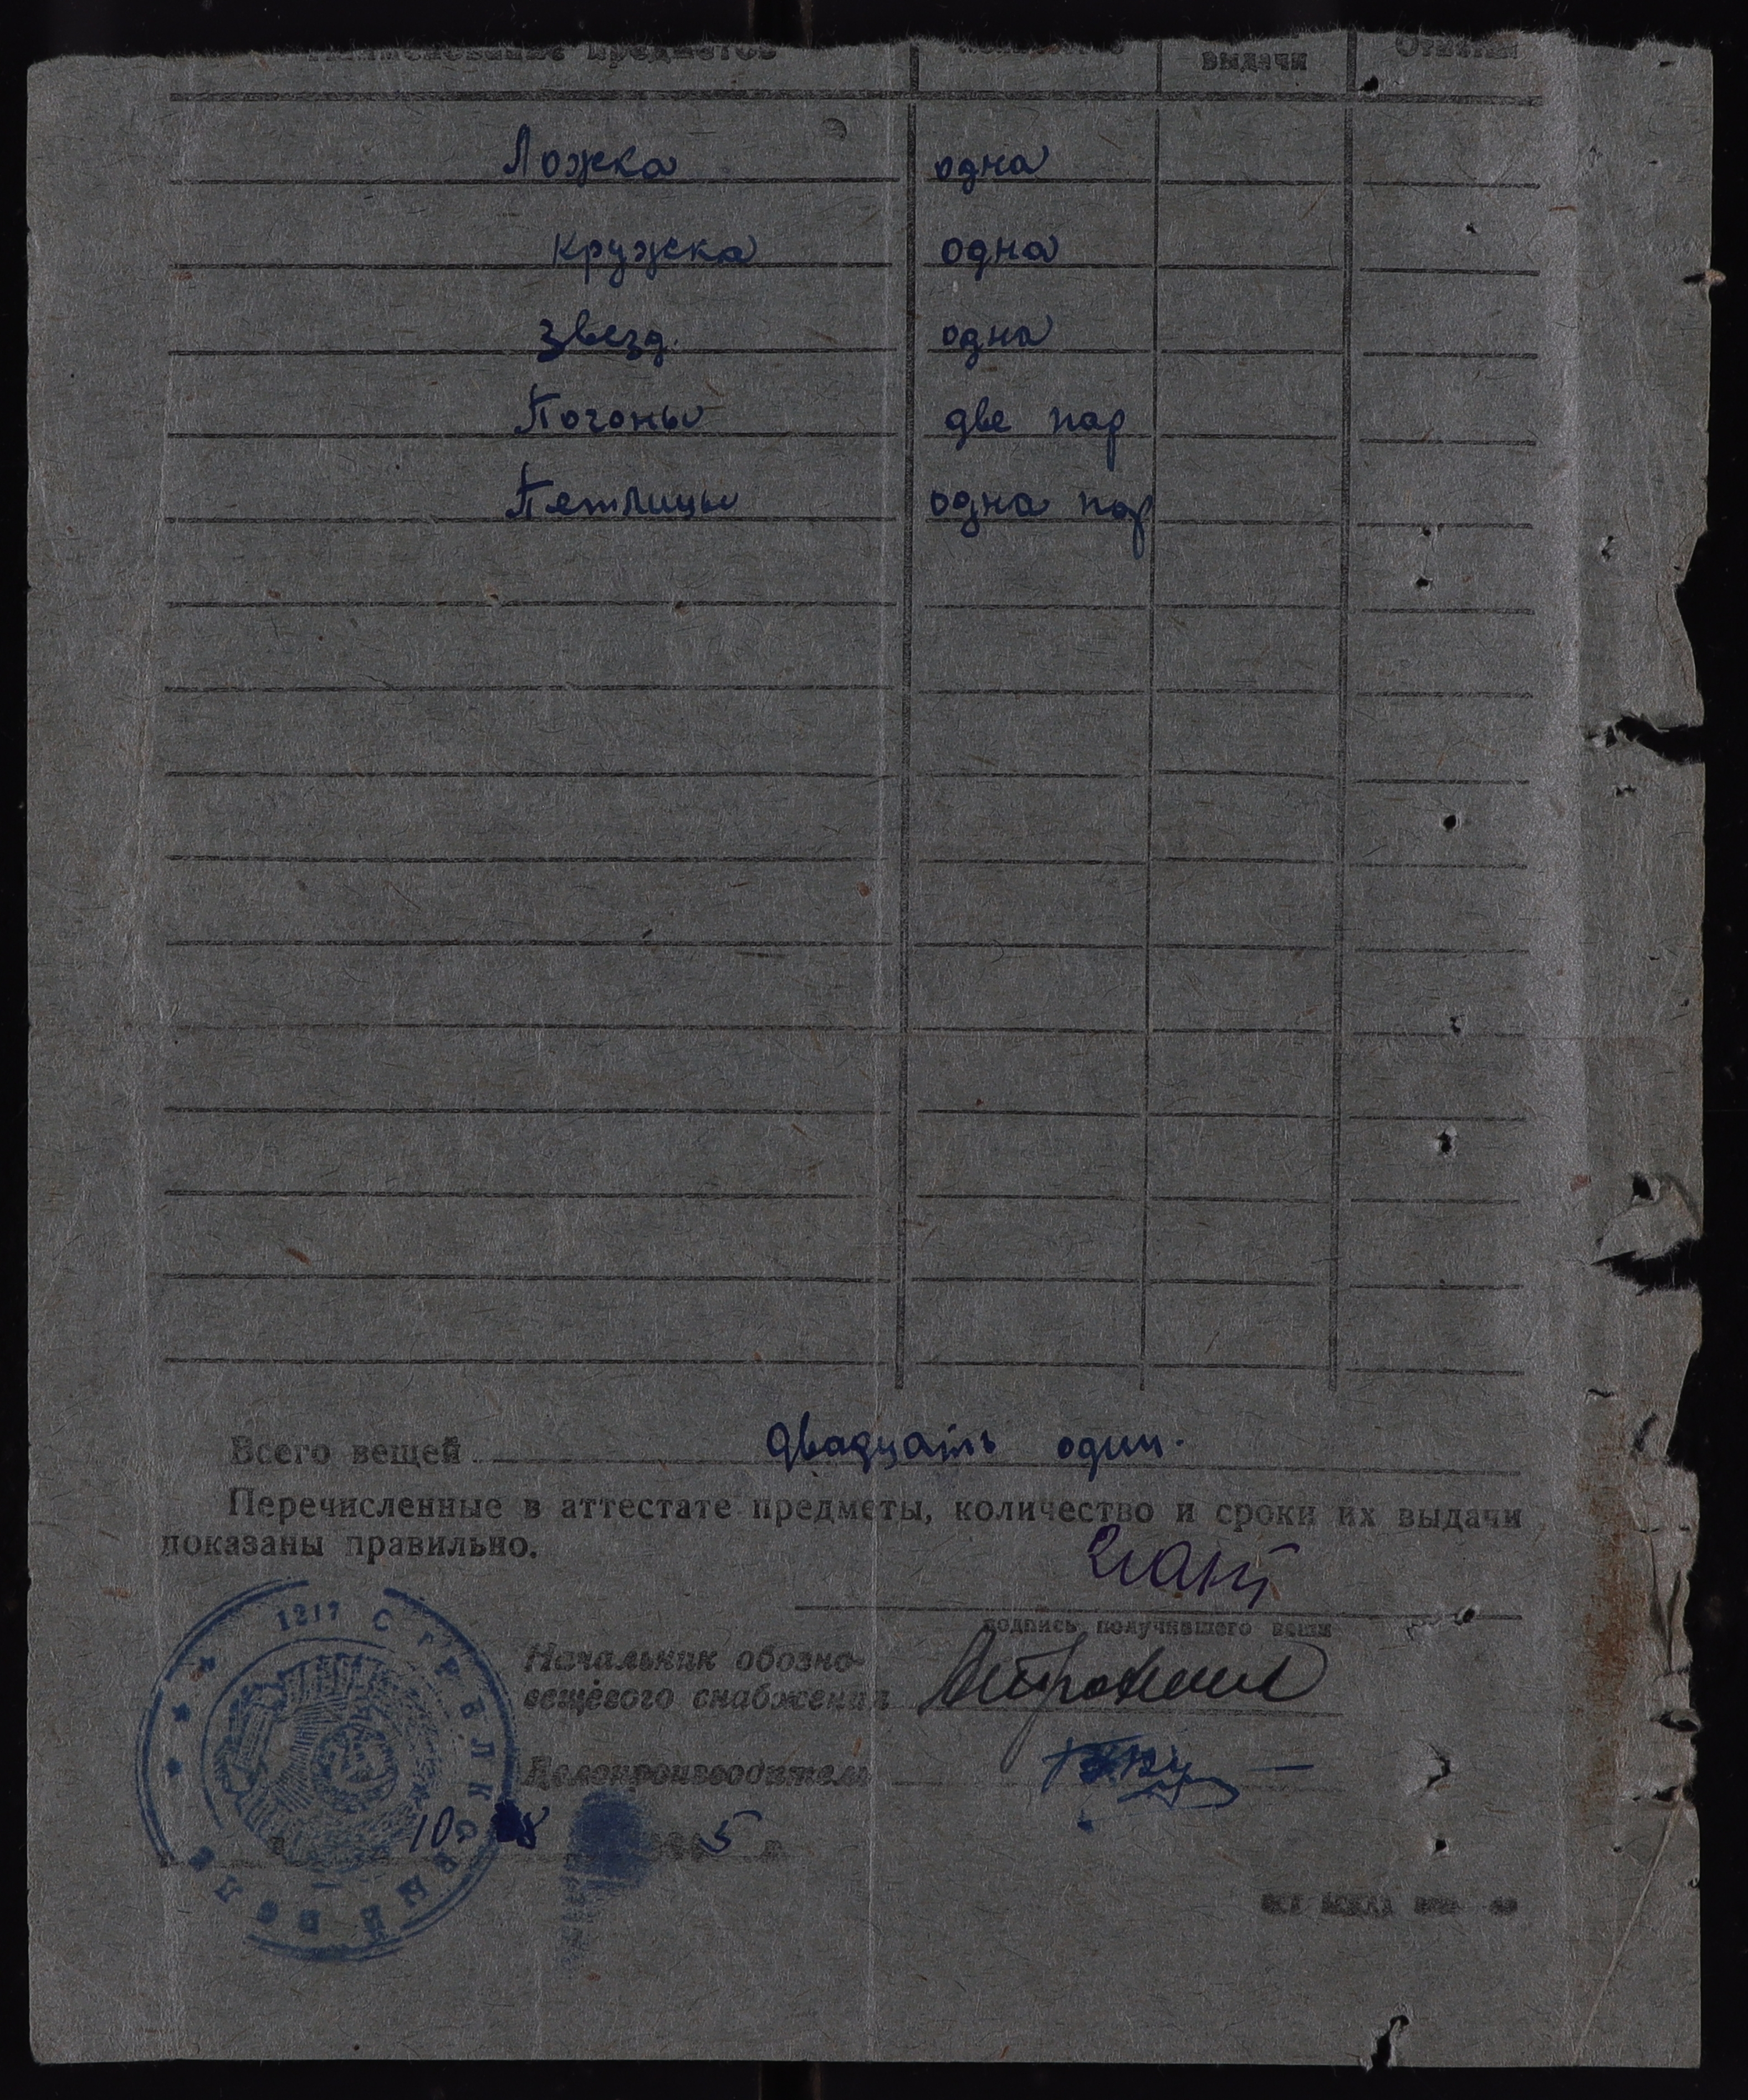 Наименование предметов выдачи Отметки
Ложка одна
кружка одна
звезд. одна
Погоны две пар
Петлицы одна пар
Всего вещей двадцать один.
Перечисленные в аттестате предметы, количество и сроки их выдачи
показаны правильно.
подпись получившего вещи
Начальник обозно-
вещевого снабжения
Делопроизводитель
10 8 5 г.
1217 СТРЕЛКОВЫЙ ПОЛК